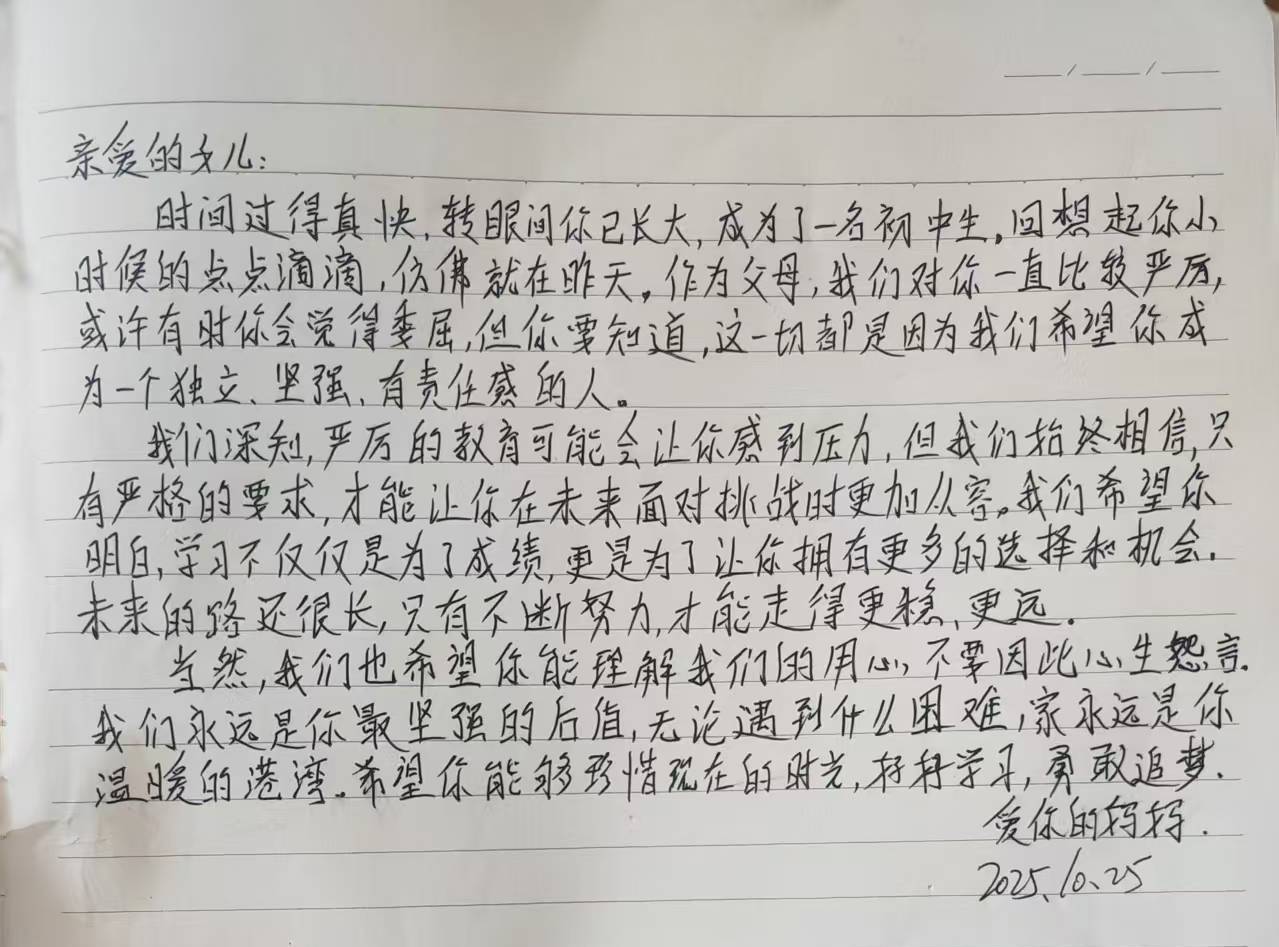 亲爱的女儿:
时间过得真快,转眼间你已长大,成为了一名初中生。回想起你小
时候的点点滴滴,仿佛就在昨天。作为父母,我们对你一直比较严厉,
或许有时你会觉得委屈,但你要知道,这一切都是因为我们希望你成
为一个独立、坚强、有责任感的人。
我们深知,严厉的教育可能会让你感到压力,但我们始终相信,只
有严格的要求,才能让你在未来面对挑战时更加从容。我们希望你
明白,学习不仅仅是为了成绩,更是为了让你拥有更多的选择和机会.
未来的路还很长,只有不断努力,才能走得更稳、更远.
当然,我们也希望你能理解我们的用心,不要因此心生怨言.
我们永远是你最坚强的后值,无论遇到什么困难,家永远是你
温暖的港湾。希望你能够珍惜现在的时光,好好学习,勇敢追梦.
爱你的妈妈.
2025.10.25